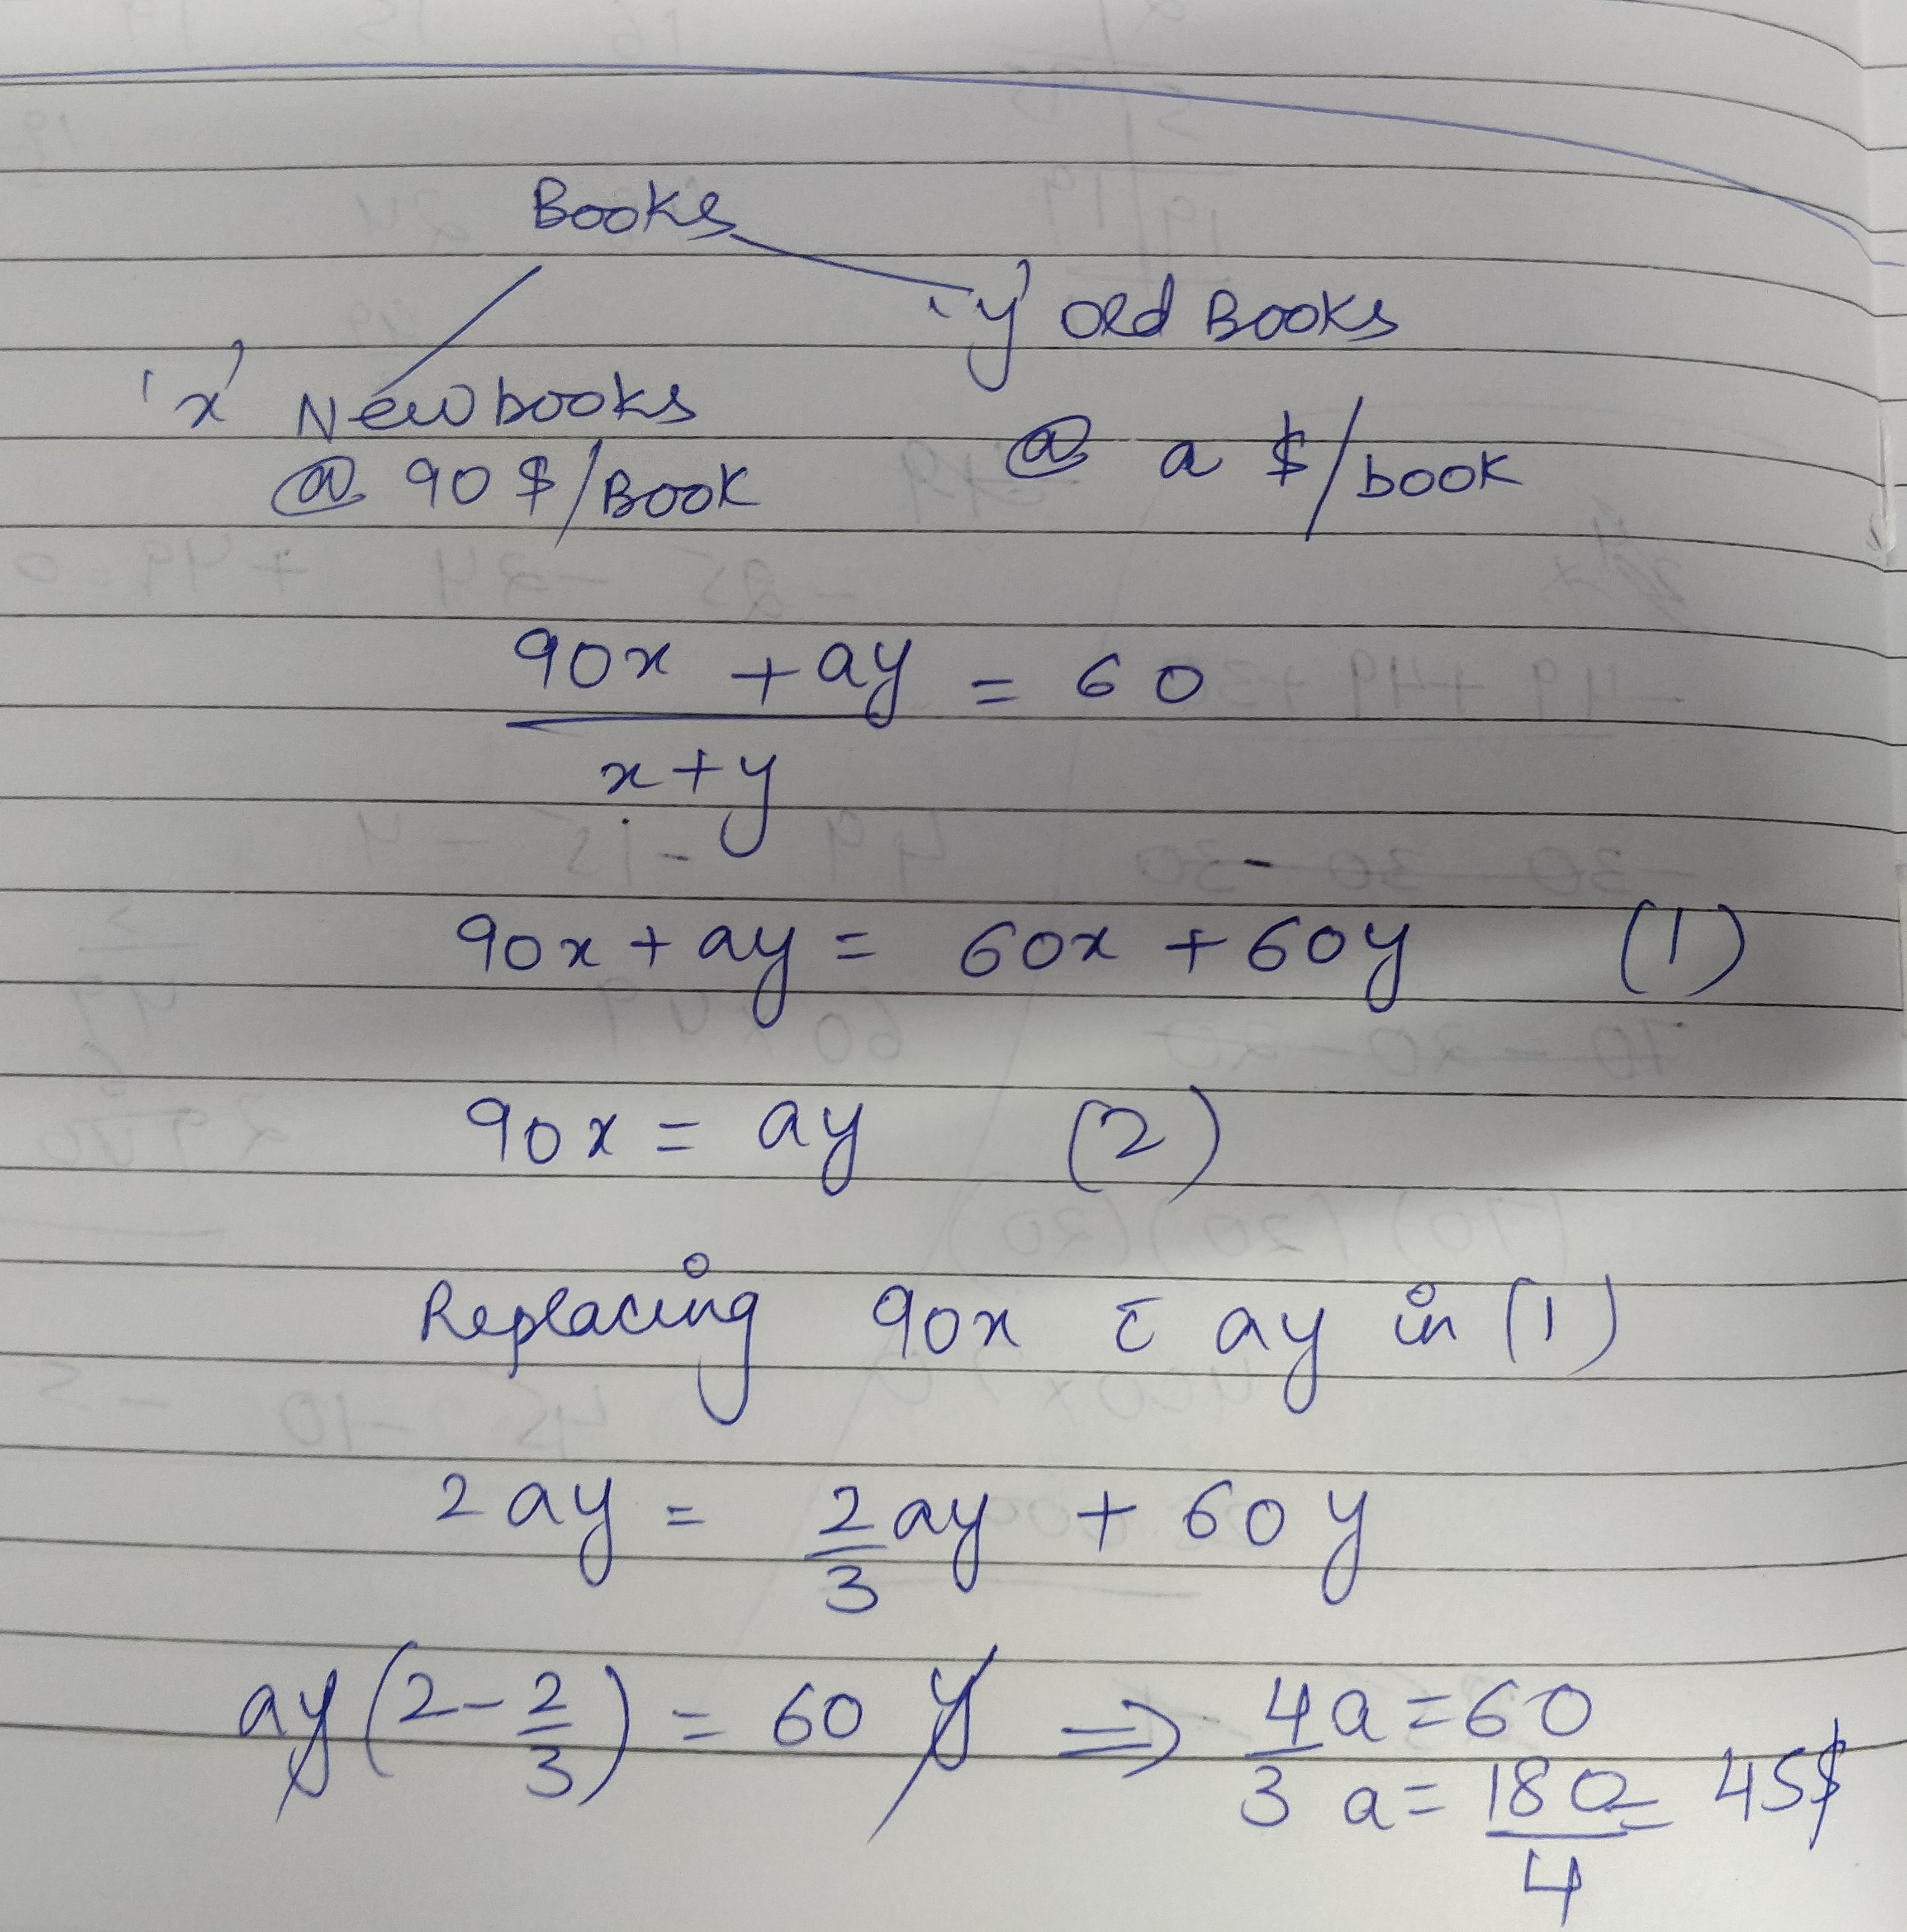 Books
'y' old Books
'x' New books
@ 90 $/Book
@ a $/book
90x + ay / x+y = 60
90x + ay = 60x + 60y (1)
90x = ay (2)
Replacing 90x c̄ ay in (1)
2ay = 2/3 ay + 60y
ay(2 - 2/3) = 60 y ⇒ 4/3 a = 60
a = 180/4 = 45$